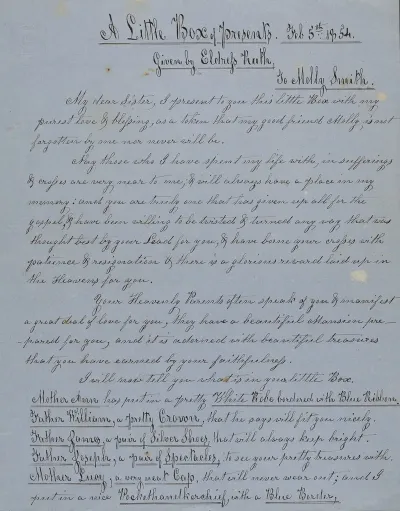 A Little Box of Presents. Feb 5th 1854.
Given by Eldress Ruth,
To Molly Smith.
My dear Sister, I present to you this little Box with my
purest love & blessing, as a token that my good friend Molly, is not
forgotten by me nor never will be.
Nay those who I have spent my life with, in sufferings
& crosses are very near to me, & will always have a place in my
memory; and you are truly one that has given up all for the
gospel, & have been willing to be twisted & turned any way that was
thought best by your Lead for you, & have borne your cross with
patience & resignation & there is a glorious reward laid up in
the Heavens for you.
Your Heavenly Parents often speak of you & manifest
a great deal of love for you, They have a beautiful Mansion pre-
pared for you, and it is adorned with beautiful treasures
that you have earned by your faithfulness.
I will now tell you what is in your little Box.
Mother Ann has put in a pretty White Robe bordered with Blue Ribbon,
Father William, a pretty Crown, that he says will fit you nicely.
Father James, a pair of Silver Shoes, that will always keep bright.
Father Joseph, a pair of Spectacles, to see your pretty treasures with.
Mother Lucy, a very neat Cap, that will never wear out; and I
put in a nice Pockethandkerchief, with a Blue Border,